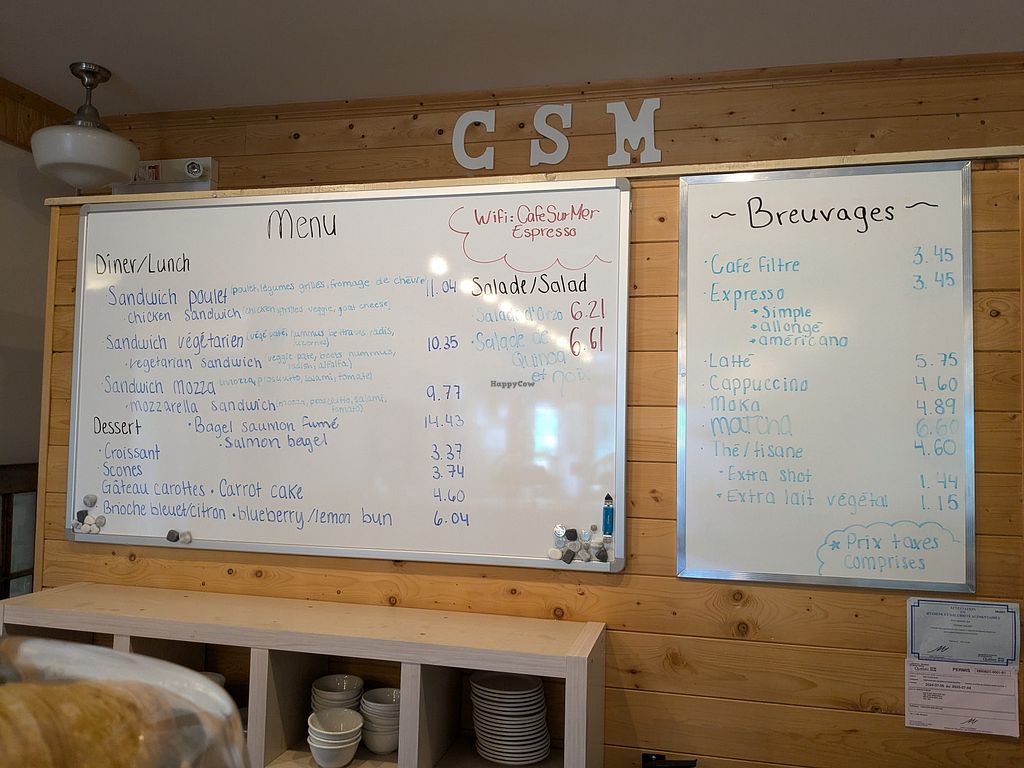 CSM
Menu
Wifi: CafeSurMer
Espresso
Dîner/Lunch
Sandwich poulet (poulet, légumes grillés, fromage de chèvre 11.04
· chicken sandwich (chicken, grilled veggie, goat cheese)
Sandwich végétarien (végé paté, hummus, betteraves, radis, 10.35
· vegetarian sandwich veggie paté, beets, hummus,
radish, alfalfa)
Sandwich mozza (mozza, prosciutto, salami, tomate) 9.77
· mozzarella sandwich (mozza, prosciutto, salami,
tomato)
· Bagel saumon fumé 14.43
· Salmon bagel
Dessert
· Croissant 3.37
· Scones 3.74
Gâteau carottes · Carrot cake 4.60
Brioche bleuet/citron · blueberry/lemon bun 6.04
Salade/Salad
· Salade d'orzo 6.21
· Salade de 6.61
Quinoa
et noix
HappyCow
~ Breuvages ~
· Café filtre 3.45
· Expresso 3.45
→ Simple
→ allongé
→ américano
· Latté 5.75
· Cappuccino 4.60
· Moka 4.89
· Matcha 6.60
· Thé/tisane 4.60
· Extra shot 1.44
· Extra lait végétal 1.15
* Prix taxes
comprises
ATTESTATION
HYGIÈNE ET SALUBRITÉ ALIMENTAIRES
Québec
PERMIS